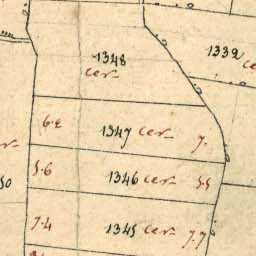 1348
cer
1339
6.2 1347 cer 7.
5.6 1346 cer 5.5
7.4 1345 cer 7.7